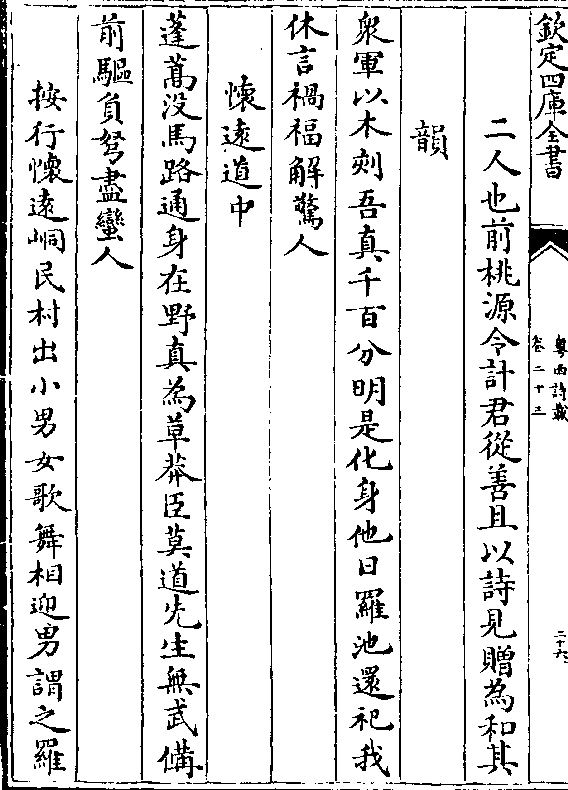 欽定四庫全書
粵西詩載
卷二十三
二十六
二人也前桃源令計君從善且以詩見贈為和其
韻
衆軍以木刻吾真千百分明是化身他日羅池還祀我
休言禍福解驚人
懷遠道中
蓬蒿没馬路通身在野真為草莽臣莫道先生無武備
前驅負弩盡蠻人
按行懷遠峒民村出小男女歌舞相迎男謂之羅